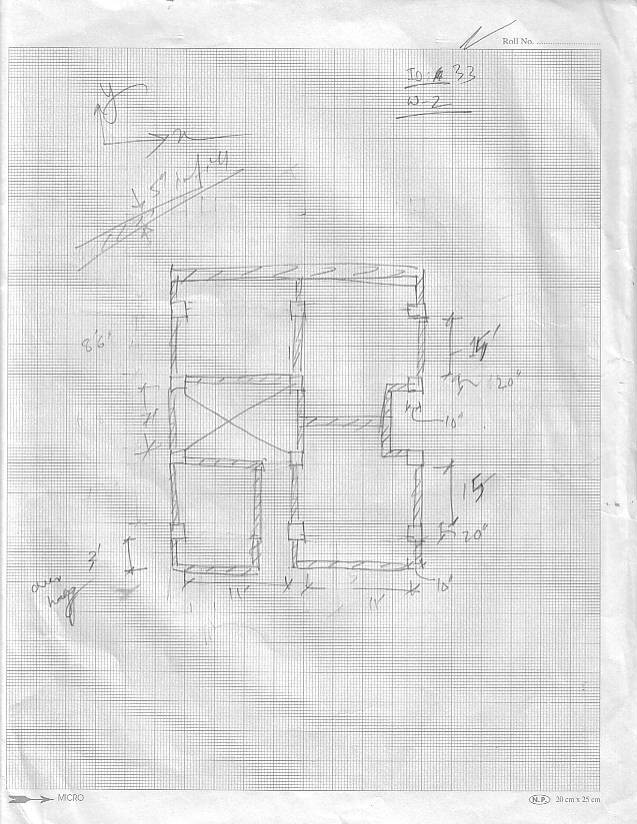 Roll No. ........................
ID: 33
W-2
y
x
5" infill
8'6"
15'
20"
10"
15
20"
3'
over
hang
11'
11'
10"
MICRO
N.P. 20 cm x 25 cm